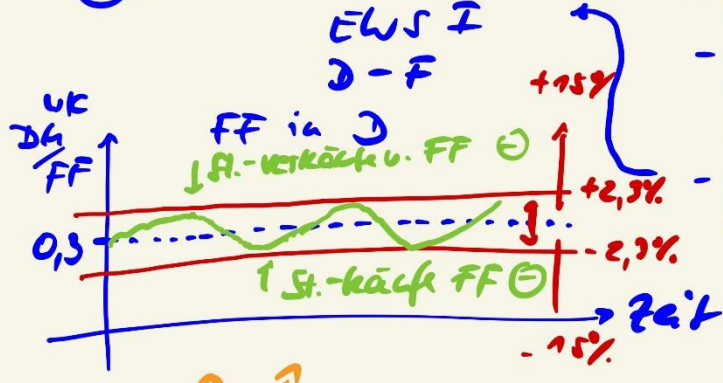 EWS I
D - F
+15%
WK
DM/FF
FF in D
↓ St.-verkäufe v. FF ⊖
+2,3%
0,3
- 2,3%
↑ St.-käufe FF ⊖
Zeit
- 15%